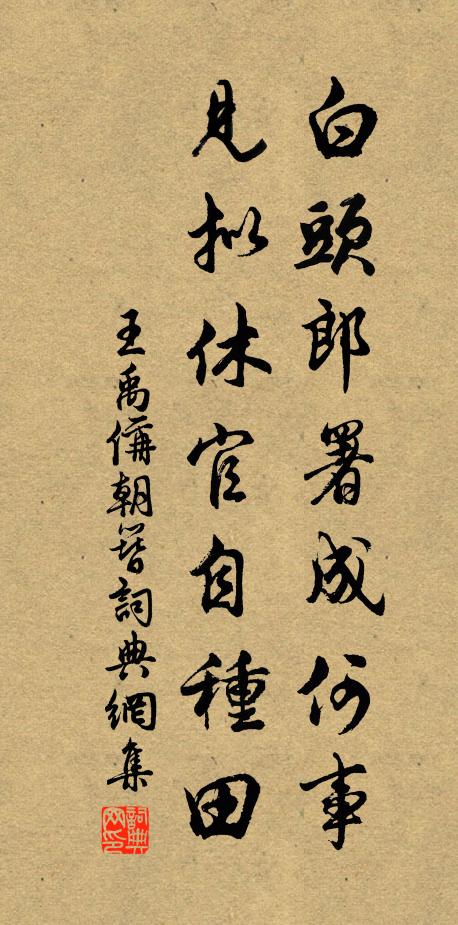 白頭郎署成何事
見拟休官自種田
王禹偁朝簪詞典網集
詞典
网印